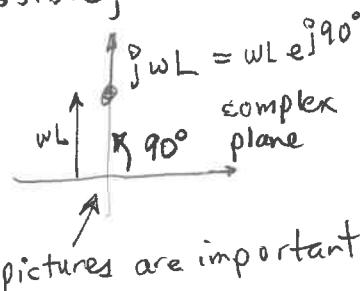 jωL = ωL e^j90°
complex
ωL 90° plane
pictures are important